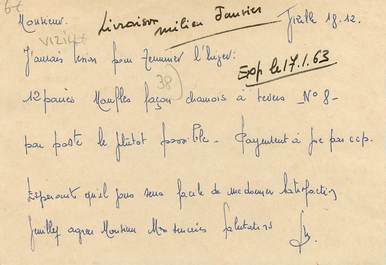 Monsieur. Livraison milieu Janvier 18.12.
J'aurais besoin pour terminer l'hiver:
Exp le 17.1.63
12 paires Moufles façon chamois à revers - N° 8 -
38
par poste le plutôt possible. Payement à par ccp.
Espérant qu'il vous sera facile de me donner satisfaction
Veuillez agréer Monsieur Mes sincères salutations